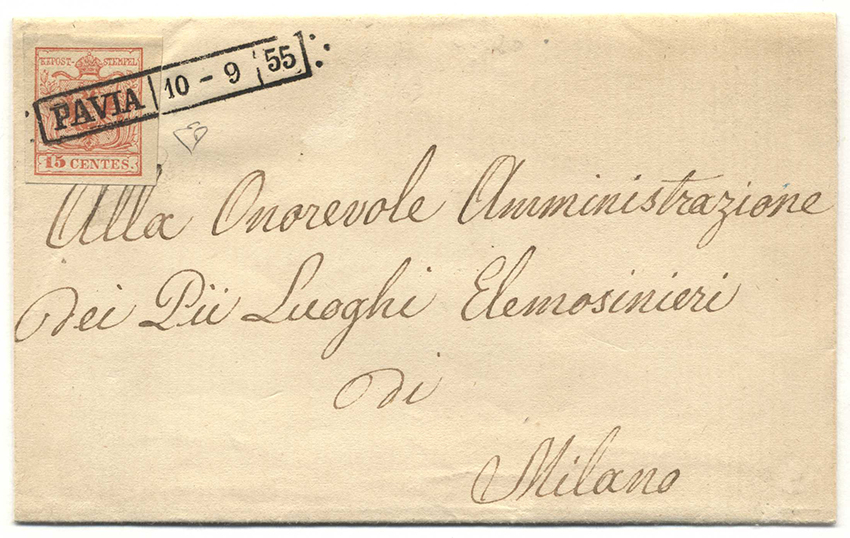 KK POST-STEMPEL
PAVIA 10 - 9 55
15 CENTES.
Alla Onorevole Amministrazione
dei Pii Luoghi Elemosinieri
di
Milano